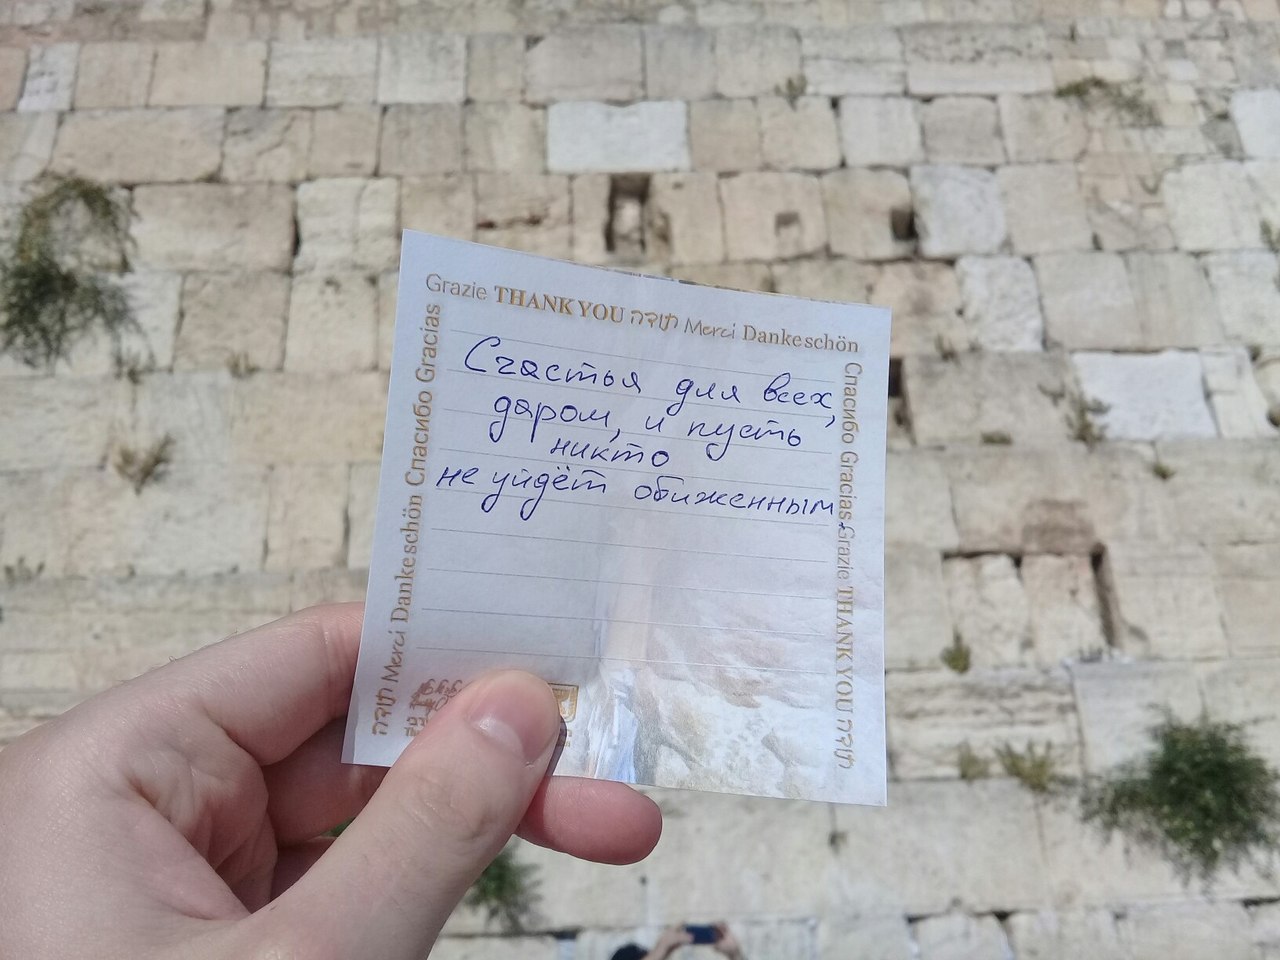 Grazie THANK YOU תודה Merci Dankeschön
Счастья для всех,
даром, и пусть
никто
не уйдёт обиженным.
תודה Merci Dankeschön Спасибо Gracias
Спасибо Gracias Grazie THANK YOU תודה